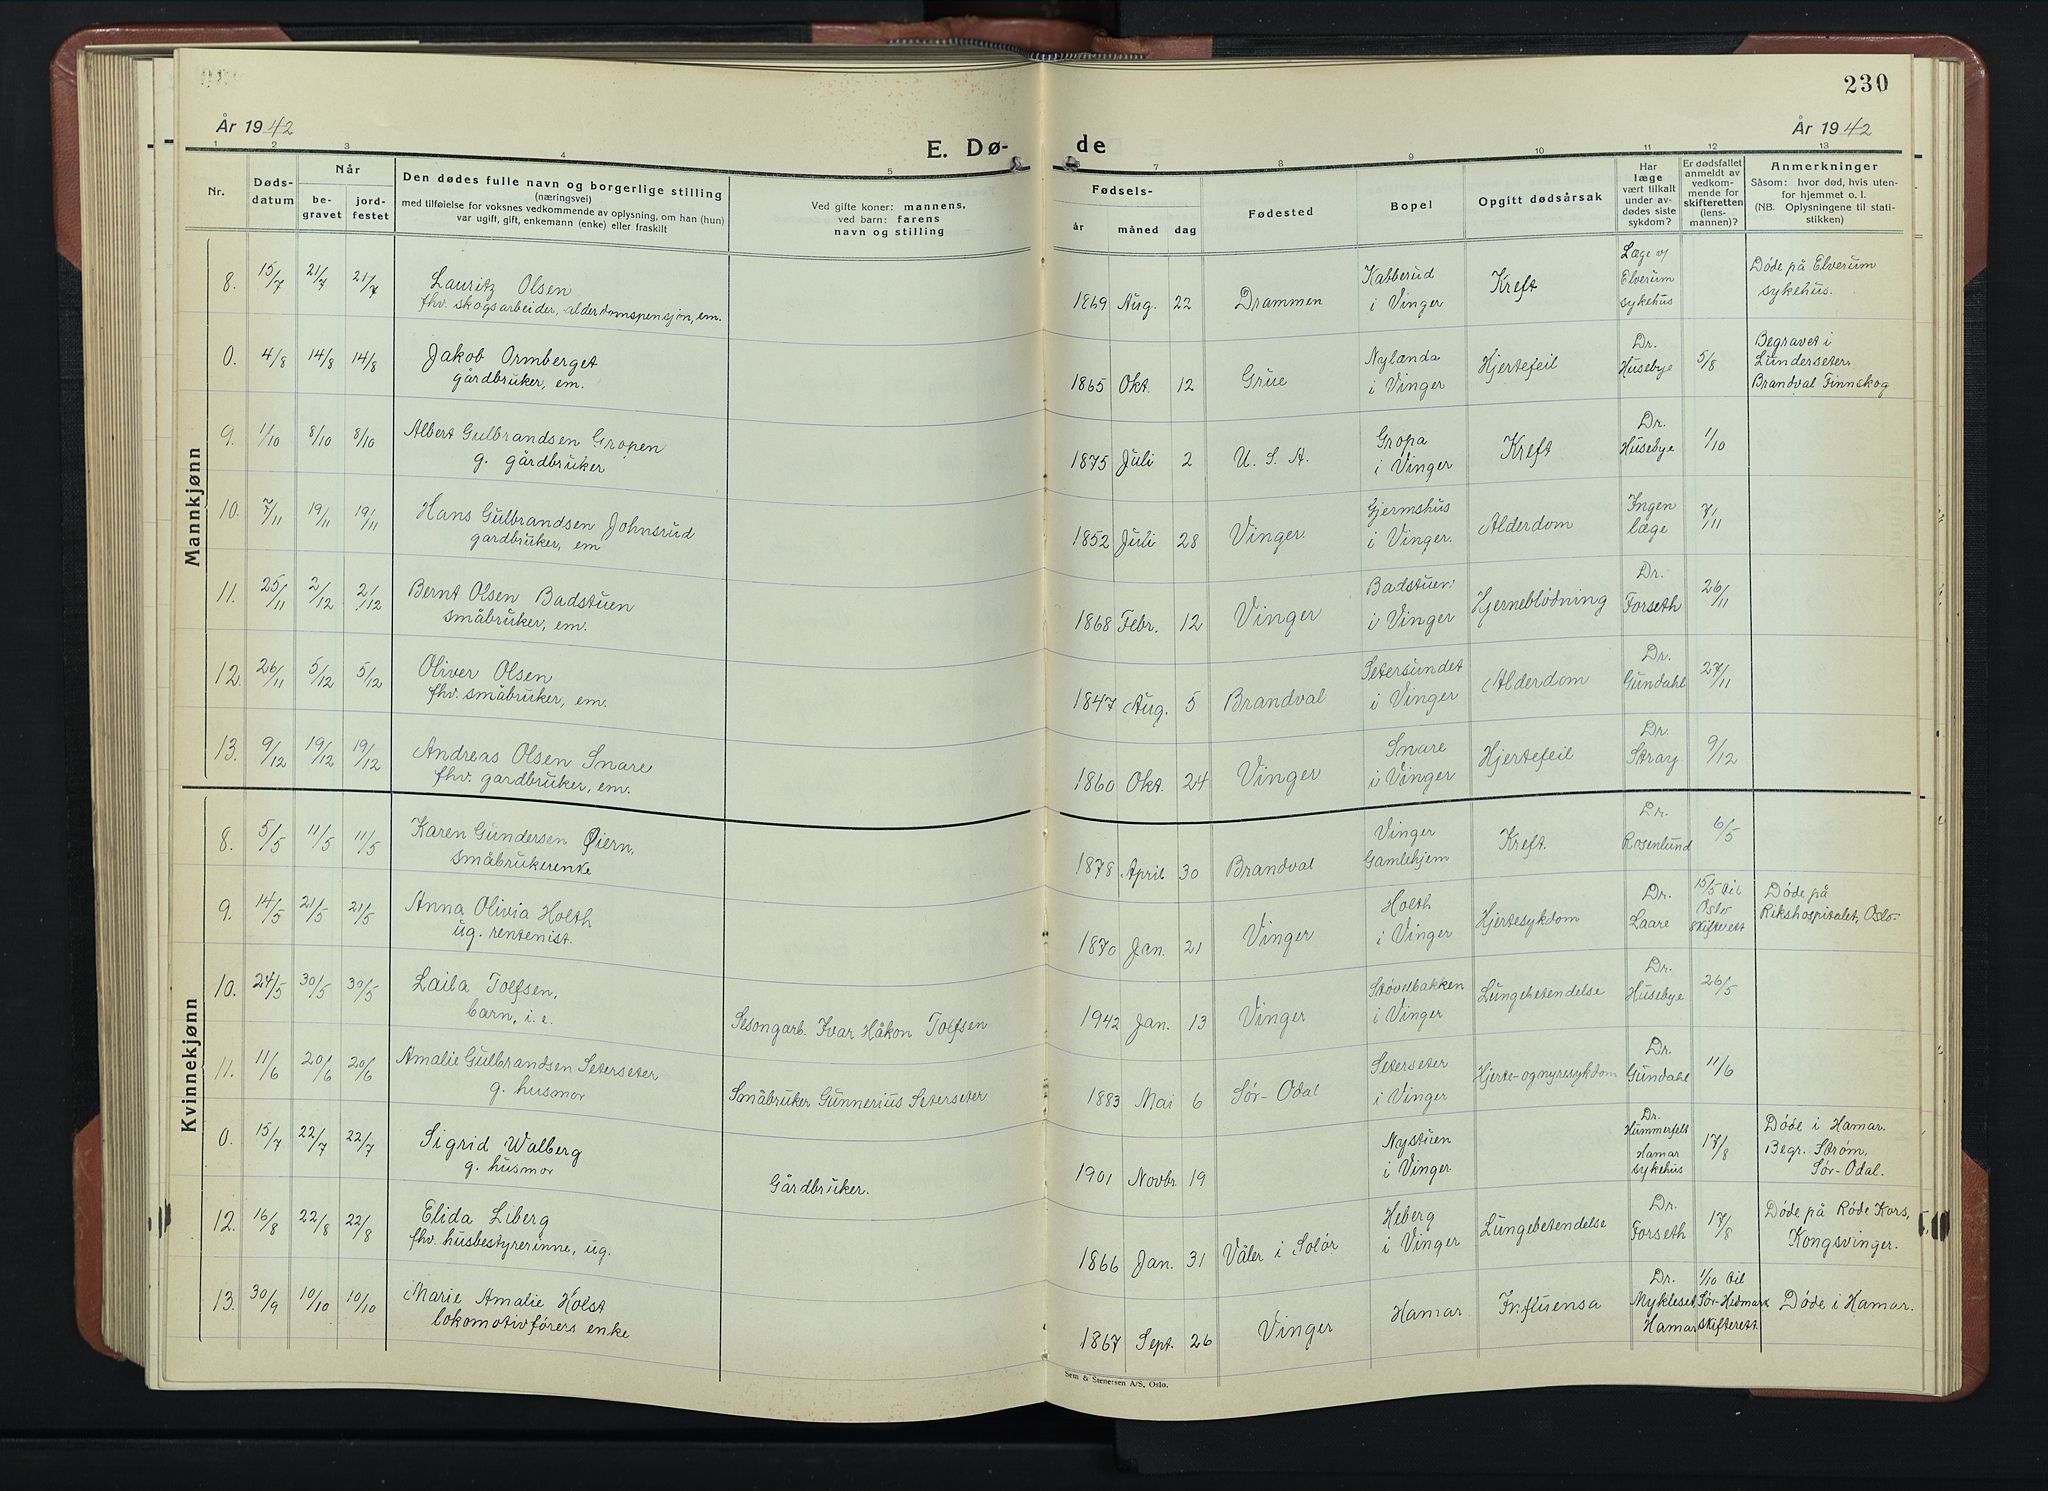 230
År 1942
År 1942
E. Dø-
de
1 2 3 4 5 6 7 8 9 10 11 12 13
Nr.
Døds-
datum
Når
be-
gravet
jord-
festet
Den dødes fulle navn og borgerlige stilling
(næringsvei)
med tilføielse for voksnes vedkommende av oplysning, om han (hun)
var ugift, gift, enkemann (enke) eller fraskilt
Ved gifte koner: mannens,
ved barn: farens
navn og stilling
Fødsels-
år måned dag
Fødested
Bopel
Opgitt dødsårsak
Har
læge
vært tilkalt
under av-
dødes siste
sykdom?
Er dødsfallet
anmeldt av
vedkom-
mende for
skifteretten
(lens-
mannen)?
Anmerkninger
Såsom: hvor død, hvis uten-
for hjemmet o. l.
(NB. Oplysningene til stati-
stikken)
Mannkjønn
8. 15/7 21/7 21/7 Lauritz Olsen
fhv. skogsarbeider, alderdomspensjon, em.
1869 Aug. 22 Drammen
Kabberud
i Vinger
Kreft
Læge v/
Elverum
sykehus
Døde på Elverum
sykehus.
0. 4/8 14/8 14/8 Jakob Ormberget
gårdbruker, em.
1865 Okt. 12 Grue
Nylænda
i Vinger
Hjertefeil
Dr.
Husebye
5/8
Begravet i
Lunderseter,
Brandval Finnskog
9. 1/10 8/10 8/10 Albert Gulbrandsen Gropen
g. gårdbruker
1875 Juli 2 U. S. A.
Gropa
i Vinger
Kreft
Dr.
Husebye
1/10
10. 7/11 19/11 19/11 Hans Gulbrandsen Johnsrud
gardbruker, em
1852 Juli 28 Vinger.
Gjermshus
i Vinger.
Alderdom
Ingen
læge
7/11
11. 25/11 2/12 2/12 Bernt Olsen Badstuen
småbruker, em.
1868 Febr. 12 Vinger
Badstuen
i Vinger
Hjerneblödning
Dr.
Forseth
26/11
12. 26/11 5/12 5/12 Oliver Olsen
fhv. småbruker, em.
1847 Aug. 5 Brandval
Setersundet
i Vinger
Alderdom
Dr.
Gundahl
27/11
13. 9/12 19/12 19/12 Andreas Olsen Snare
fhv. gardbruker, em.
1860 Okt. 24 Vinger
Snare
i Vinger
Hjertefeil
Dr.
Stray.
9/12
Kvinnekjønn
8. 5/5 11/5 11/5 Karen Gundersen Øiern,
småbrukerenke
1878 April 30 Brandval
Vinger
Gamlehjem
Kreft.
Dr.
Rosenlund
6/5
9. 14/5 21/5 21/5 Anna Olivia Holth
ug. rentenist.
1870 Jan. 21 Vinger
Holth
i Vinger
Hjertesykdom
Dr.
Laare
15/5 til
Oslo
skifterett
Døde på
Rikshospitalet, Oslo-
10. 24/5 30/5 30/5 Laila Tolfsen,
barn, i. e.
Sesongarb. Ivar Håkon Tolfsen
1942 Jan. 13 Vinger
Støvelbakken
i Vinger
Lungebetendelse
Dr.
Husebye
26/5
11. 11/6 20/6 20/6 Amalie Gulbrandsen Seterseter
g. husmor
Småbruker Gunnerius Seterseter
1883 Mai 6 Sør-Odal
Seterseter
i Vinger
Hjerte- og nyresykdom
Dr.
Gundahl
11/6
0. 15/7 22/7 22/7 Sigrid Walberg
g. husmor
Gårdbruker.
1901 Novbr 19
Nystuen
i Vinger
Dr.
Hummerfelt
Hamar
sykehus
17/8
Døde i Hamar.
Begr. Strøm,
Sør-Odal.
12. 16/8 22/8 22/8 Elida Liberg
fhv. husbestyrerinne, ug.
1866 Jan. 31 Våler i Solör
Heberg
i Vinger
Lungebetendelse
Dr.
Forseth
17/8
Døde på Røde Kors,
Kongsvinger.
13. 30/9 10/10 10/10 Marie Amalie Holst
lokomotivførers enke
1867 Sept. 26 Vinger
Hamar
Influensa
Dr.
Mykleset
Hamar
1/10 til
Sør-Hedmark
skifterett.
Døde i Hamar.
Sem & Stenersen A/S, Oslo.